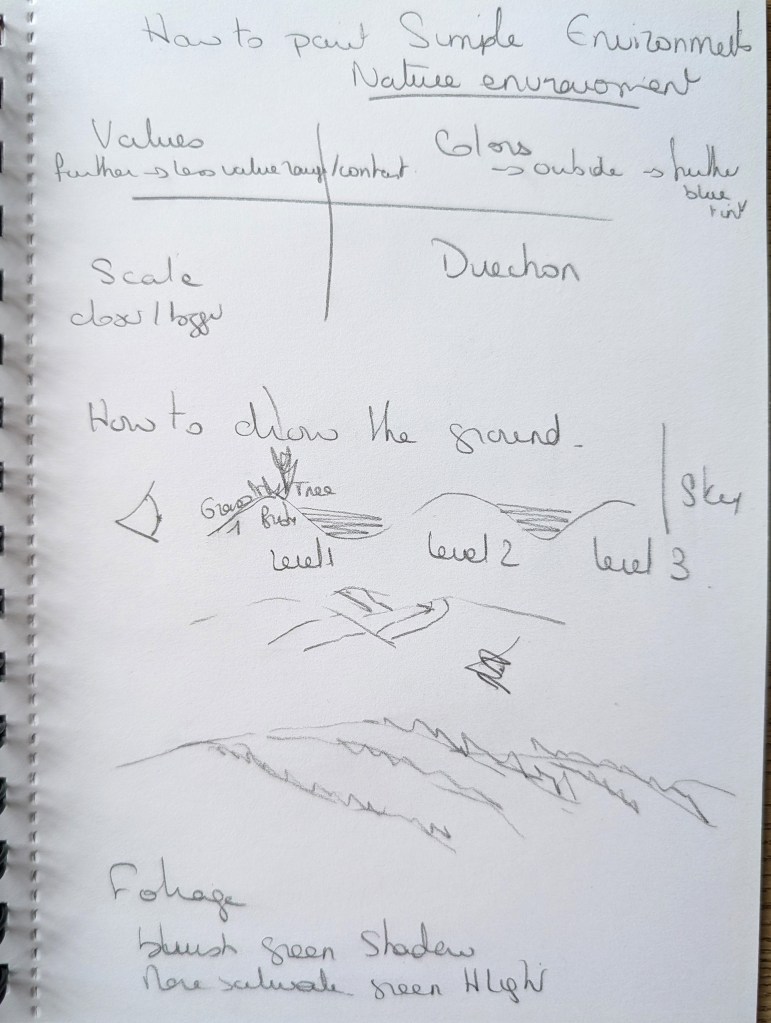 How to paint Simple Environments
Nature environment
Values
further → less value range/contrast.
Colors
→ outside → further
blue
tint
Scale
closer / bigger
Direction
How to draw the ground.
Grass
Tree
1
Bush
Sky
Level 1
Level 2
Level 3
Foliage
blueish green Shadow
More saturate green HLight